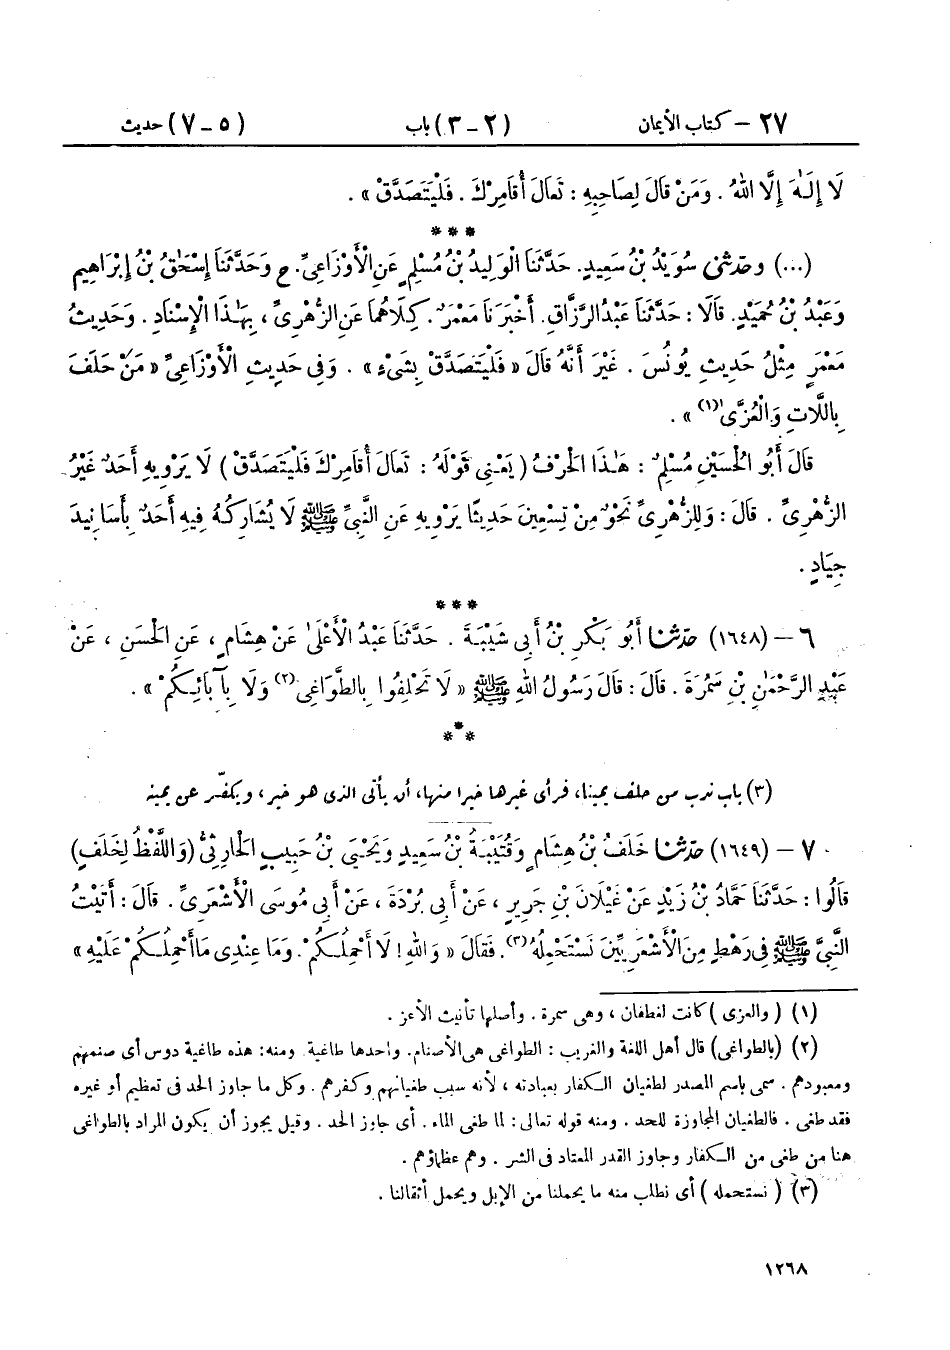 ٢٧ – كتاب الأيمان (٢ – ٣) باب (٥ – ٧) حديث
لَا إِلَٰهَ إِلَّا اللهُ . وَمَنْ قَالَ لِصَاحِبِهِ : تَعَالَ أُقَامِرْكَ . فَلْيَتَصَدَّقْ » .
***
(...) وحَدَّثَنِى سُوَيْدُ بْنُ سَعِيدٍ. حَدَّثَنَا الْوَلِيدُ بْنُ مُسْلِمٍ عَنِ الْأَوْزَاعِىِّ. ح وَحَدَّثَنَا إِسْحَٰقُ بْنُ إِبْرَاهِيمَ
وَعَبْدُ بْنُ حُمَيْدٍ. قَالَا : حَدَّثَنَا عَبْدُ الرَّزَّاقِ. أَخْبَرَنَا مَعْمَرٌ. كِلَاهُمَا عَنِ الزُّهْرِىِّ ، بِهَٰذَا الْإِسْنَادِ . وَحَدِيثُ
مَعْمَرٍ مِثْلُ حَدِيثِ يُونُسَ . غَيْرَ أَنَّهُ قَالَ « فَلْيَتَصَدَّقْ بِشَىْءٍ » . وَفِى حَدِيثِ الْأَوْزَاعِىِّ « مَنْ حَلَفَ
بِاللَّاتِ وَالْعُزَّىٰ(١) » .
قَالَ أَبُو الْحُسَيْنِ مُسْلِمٌ : هَٰذَا الْحَرْفُ ( يَعْنِى قَوْلَهُ : تَعَالَ أُقَامِرْكَ فَلْيَتَصَدَّقْ ) لَا يَرْوِيهِ أَحَدٌ غَيْرُ
الزُّهْرِىِّ . قَالَ : وَلِلزُّهْرِىِّ نَحْوٌ مِنْ تِسْعِينَ حَدِيثًا يَرْوِيهِ عَنِ النَّبِىِّ ﷺ لَا يُشَارِكُهُ فِيهِ أَحَدٌ بِأَسَانِيدَ
جِيَادٍ .
***
٦ – (١٦٤٨) حَدَّثَنَا أَبُو بَكْرِ بْنُ أَبِى شَيْبَةَ . حَدَّثَنَا عَبْدُ الْأَعْلَىٰ عَنْ هِشَامٍ ، عَنِ الْحَسَنِ ، عَنْ
عَبْدِ الرَّحْمَٰنِ بْنِ سَمُرَةَ . قَالَ : قَالَ رَسُولُ اللهِ ﷺ « لَا تَحْلِفُوا بِالطَّوَاغِى(٢) وَلَا بِآبَائِكُمْ » .
***
(٣) باب ندب من حلف يمينا، فرأى غيرها خيرا منها، أن يأتى الذى هو خير ، ويكفّر عن يمينه
٧ – (١٦٤٩) حَدَّثَنَا خَلَفُ بْنُ هِشَامٍ وَقُتَيْبَةُ بْنُ سَعِيدٍ وَيَحْيَىٰ بْنُ حَبِيبٍ الْحَارِثِىُّ (وَاللَّفْظُ لِخَلَفٍ)
قَالُوا : حَدَّثَنَا حَمَّادُ بْنُ زَيْدٍ عَنْ غَيْلَانَ بْنِ جَرِيرٍ ، عَنْ أَبِى بُرْدَةَ ، عَنْ أَبِى مُوسَى الْأَشْعَرِىِّ . قَالَ : أَتَيْتُ
النَّبِىَّ ﷺ فِى رَهْطٍ مِنَ الْأَشْعَرِيِّينَ نَسْتَحْمِلُهُ(٣). فَقَالَ « وَاللهِ ! لَا أَحْمِلُكُمْ. وَمَا عِنْدِى مَا أَحْمِلُكُمْ عَلَيْهِ »
(١) ( والعزى ) كانت لغطفان ، وهى سمرة . وأصلها تأنيث الأعز .
(٢) (بالطواغى) قال أهل اللغة والغريب : الطواغى هى الأصنام. واحدها طاغية . ومنه: هذه طاغية دوس أى صنمهم
ومعبودهم . سمى باسم المصدر لطغيان الكفار بعبادته ، لأنه سبب طغيانهم وكفرهم . وكل ما جاوز الحد فى تعظيم أو غيره
فقد طغى . فالطغيان المجاوزة للحد . ومنه قوله تعالى: لما طغى الماء . أى جاوز الحد . وقيل يجوز أن يكون المراد بالطواغى
هنا من طغى من الكفار وجاوز القدر المعتاد فى الشر . وهم عظماؤهم .
(٣) ( نستحمله ) أى نطلب منه ما يحملنا من الإبل ويحمل أثقالنا .
١٢٦٨